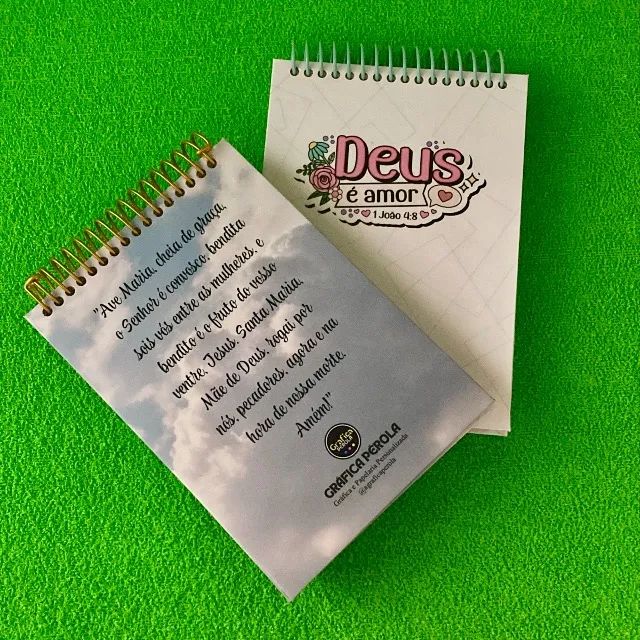 "Ave Maria, cheia de graça,
o Senhor é convosco, bendita
sois vós entre as mulheres, e
bendito é o fruto do vosso
ventre, Jesus. Santa Maria,
Mãe de Deus, rogai por
nós, pecadores, agora e na
hora de nossa morte.
Amém!"
Gráfica
GRÁFICA PÉROLA
Gráfica e Papelaria Personalizada
@agraficaperola
Deus
é amor
1 João 4:8